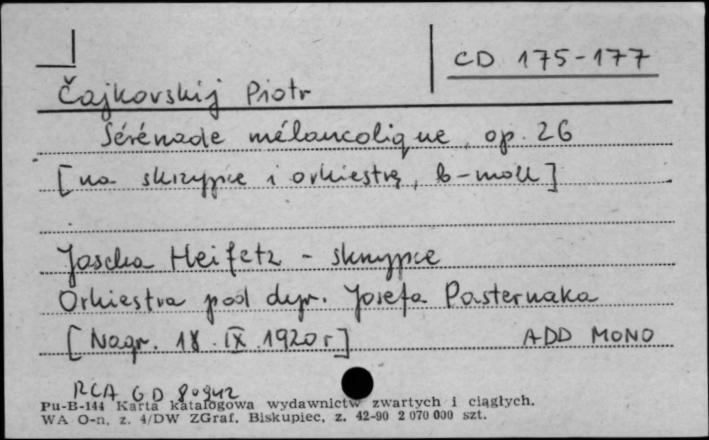 CD 175-177
Čajkovskij Piotr
Sérénade mélancolique, op. 26
[na skrzypce i orkiestrę, b-moll]
Jascha Heifetz - skrzypce
Orkiestra pod dyr. Josefa Pasternaka
[Nagr. 18.IX.1920 r]
ADD MONO
RCA GD 80942
Pu-B-144 Karta katalogowa wydawnictw zwartych i ciągłych.
WA O-n, z. 4/DW ZGraf. Biskupiec, z. 42-90 2 070 000 szt.